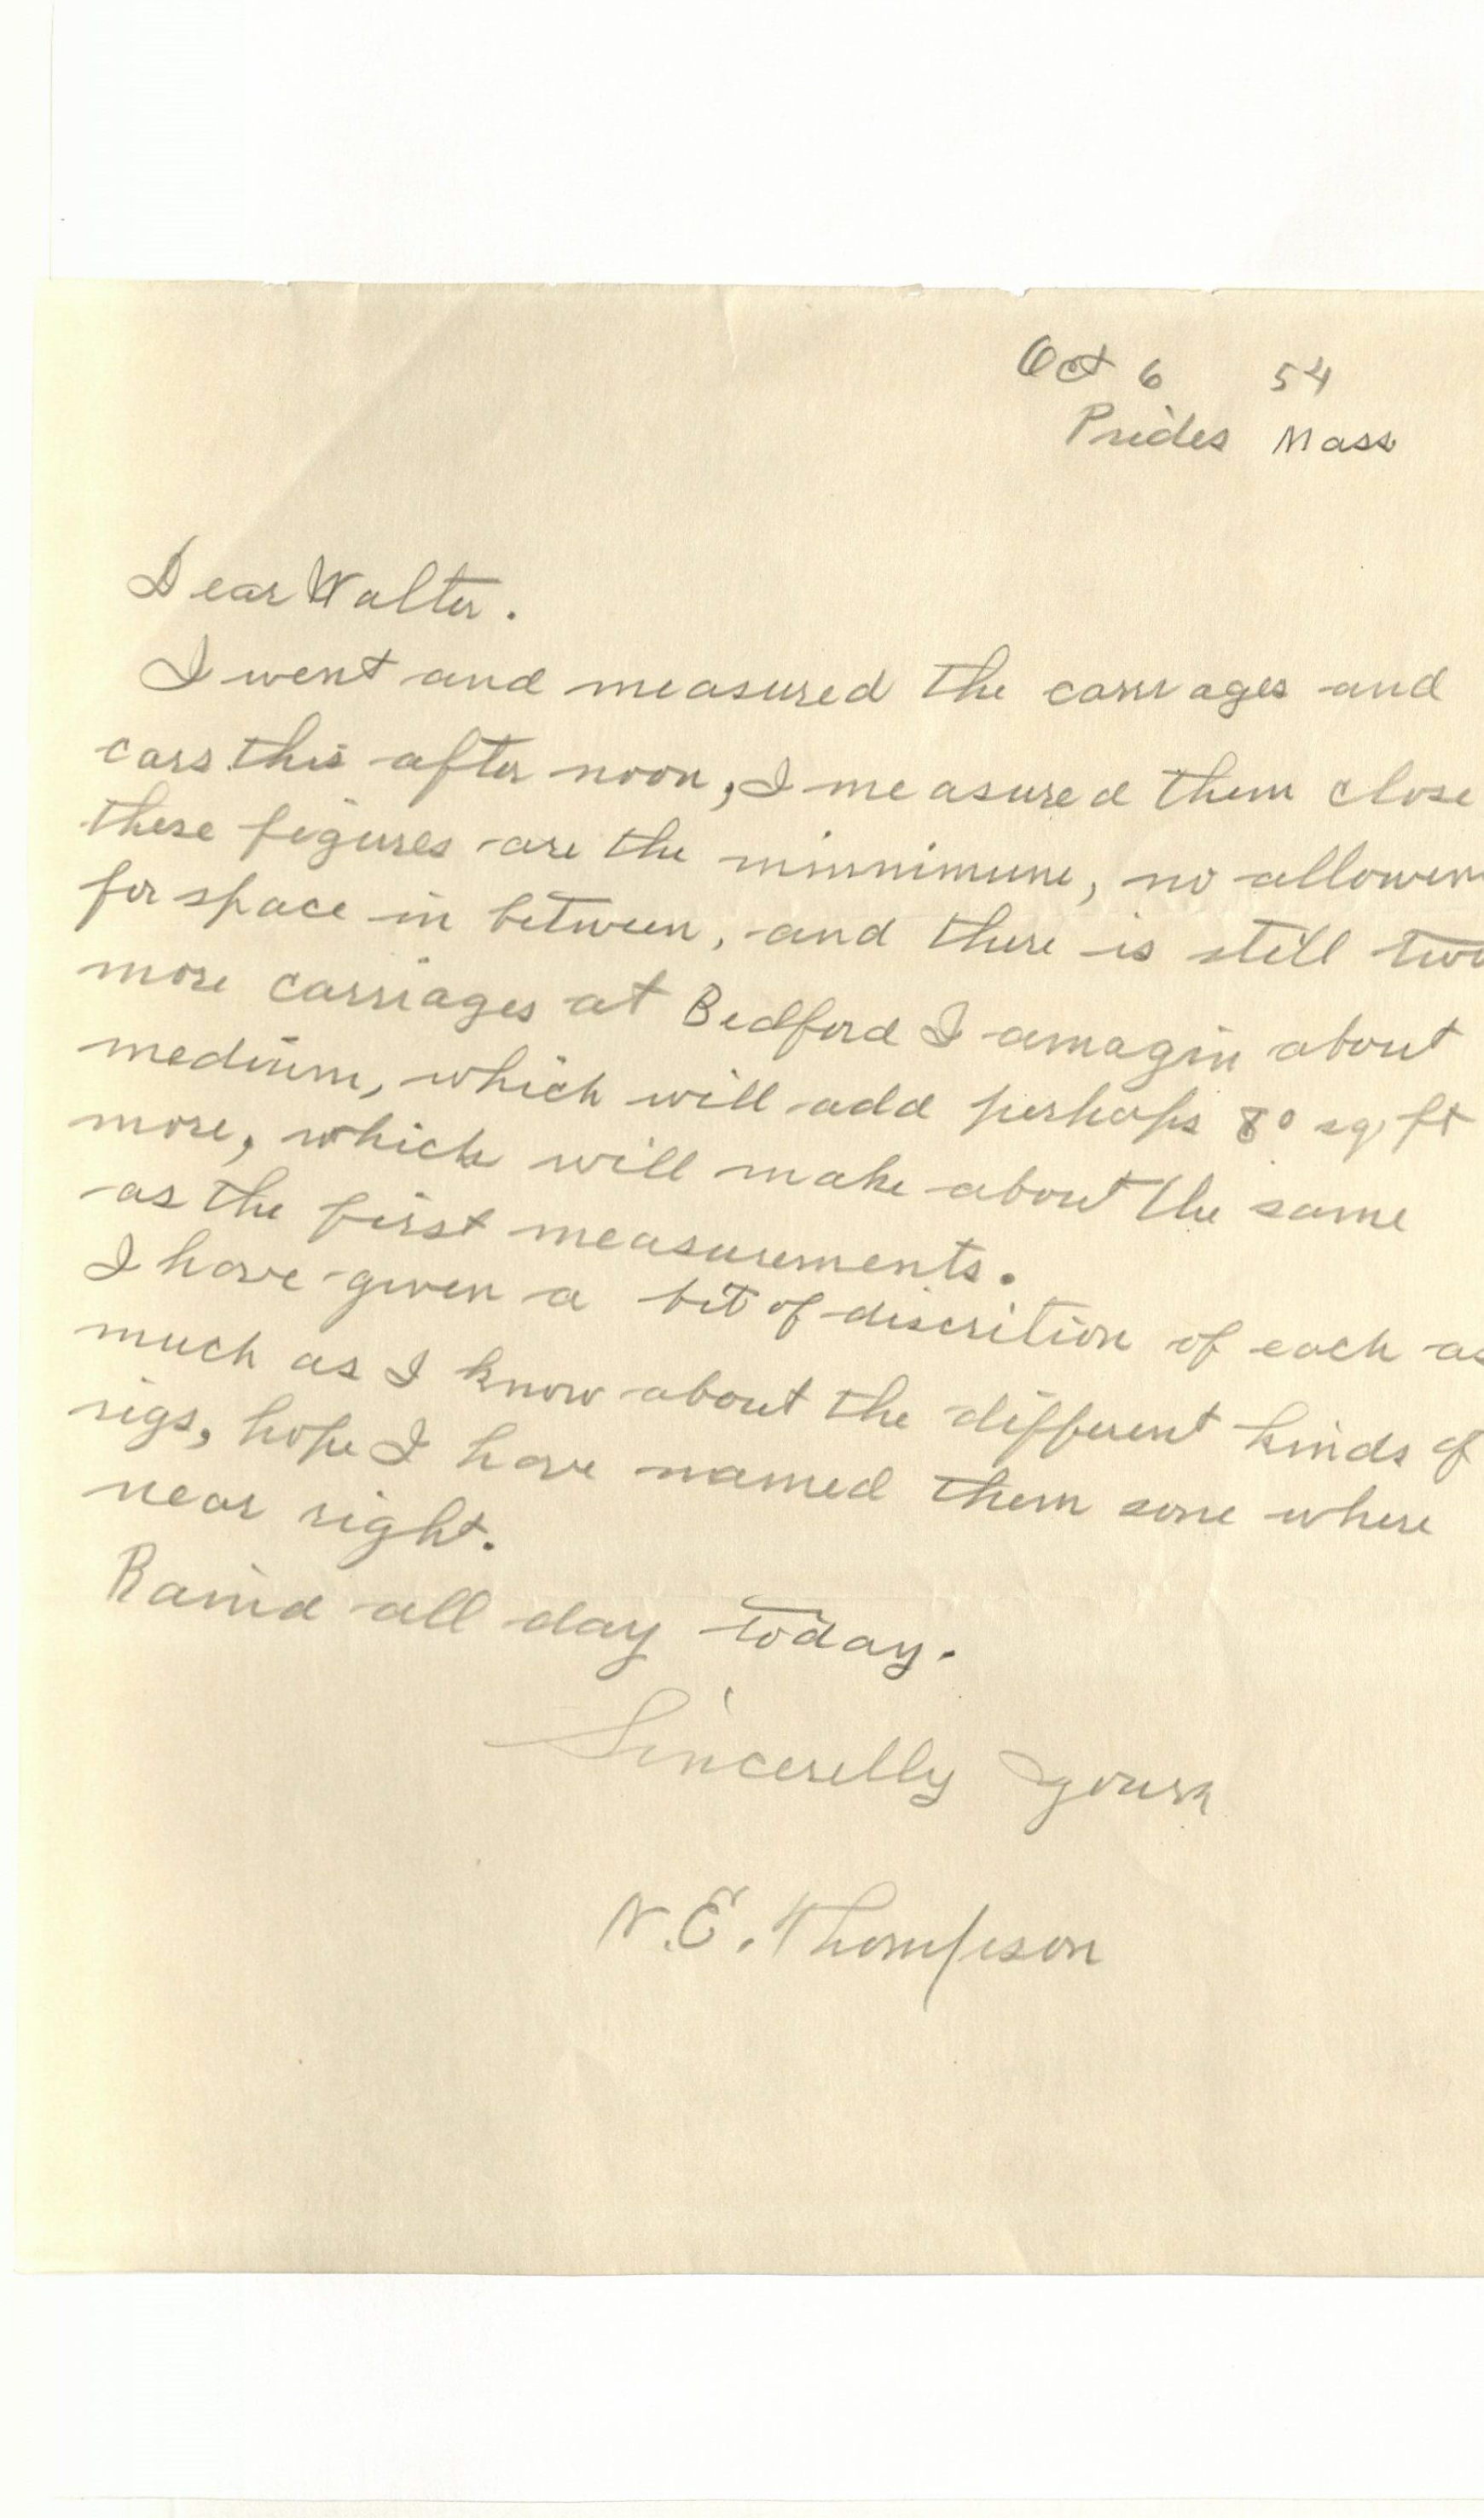 Oct 6 54
Prides Mass
Dear Walter.
I went and measured the carriages and
cars this after noon, I measured them close
these figures are the minnimune, no allowen
for space in between, and there is still two
more carriages at Bedford I amagin about
medium, which will add perhaps 80 sq. ft
more, which will make about the same
as the first measurements.
I have given a bit of discrition of each as
much as I know about the different kinds of
rigs, hope I have named them some where
near right.
Raind all day today.
Sincerelly yours
N.E. Thompson